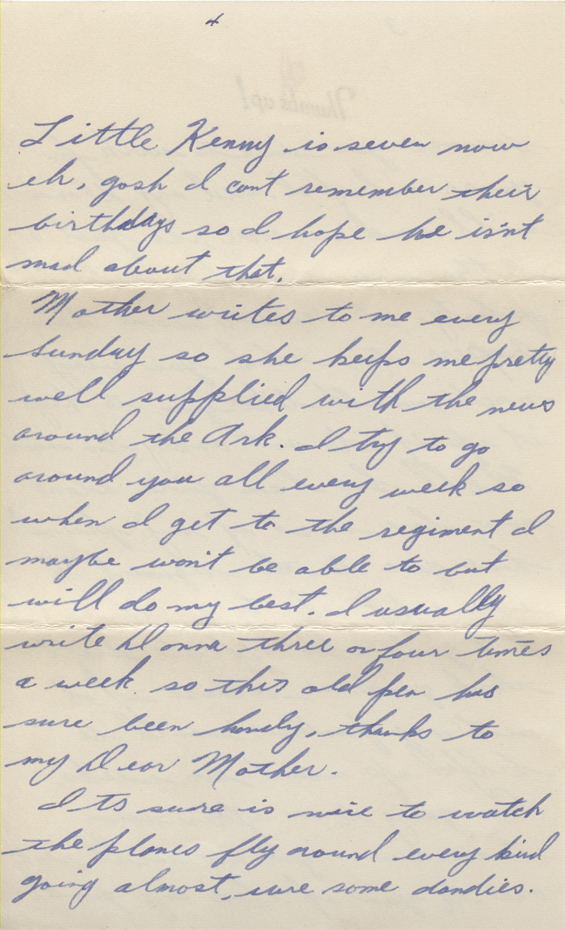 4
Thumbs up!
Little Kenny is seven now
eh, gosh I cant remember their
birthdays so I hope he isn't
mad about that.
Mother writes to me every
Sunday so she keeps me pretty
well supplied with the news
around the Ark. I try to go
around you all every week so
when I get to the regiment I
maybe won't be able to but
will do my best. I usually
write Donna three or four times
a week so this old pen has
sure been handy, thanks to
my Dear Mother.
Its sure is nice to watch
the planes fly around every kind
going almost, sure some dandies.